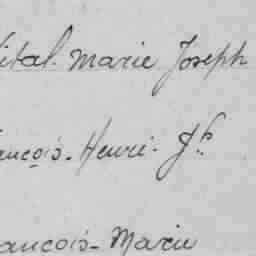 Vital. Marie Joseph
ançois. Henri. Jh
ancois. Marie